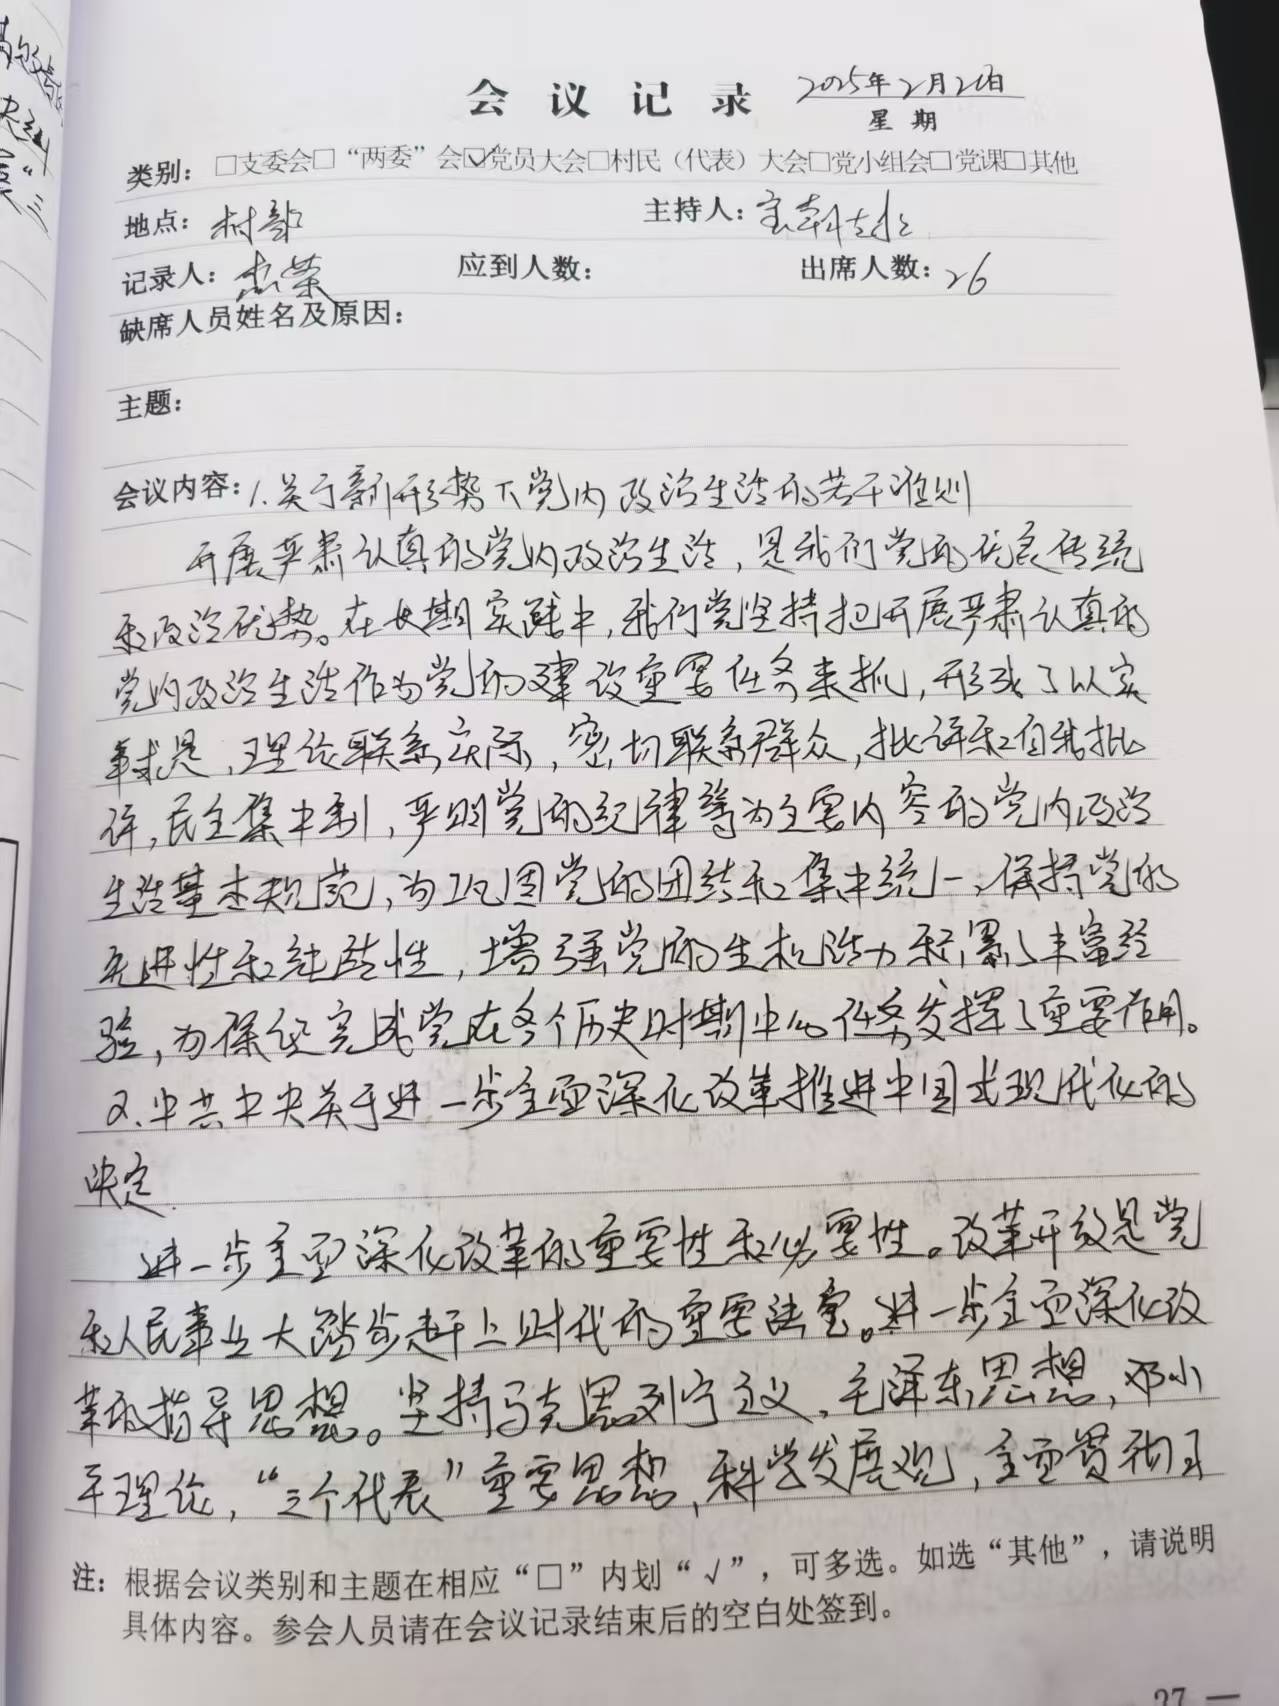 会议记录 2025年2月2日
星期
类别：□支委会□“两委”会☑党员大会□村民（代表）大会□党小组会□党课□其他
地点：村部 主持人：
记录人： 应到人数： 出席人数：26
缺席人员姓名及原因：
主题：
会议内容：1.关于新形势下党内政治生活的若干准则
开展严肃认真的党内政治生活，是我们党的优良传统
和政治优势。在长期实践中，我们党坚持把开展严肃认真的
党内政治生活作为党的建设重要任务来抓，形成了以实
事求是，理论联系实际，密切联系群众，批评和自我批
评，民主集中制，严明党的纪律等为主要内容的党内政治
生活基本规范，为巩固党的团结和集中统一、保持党的
先进性和纯洁性，增强党的生机活力积累了丰富经
验，为保证完成党在各个历史时期中心任务发挥了重要作用。
2.中共中央关于进一步全面深化改革推进中国式现代化的
决定
进一步全面深化改革的重要性和必要性。改革开放是党
和人民事业大踏步赶上时代的重要法宝。进一步全面深化改
革的指导思想。坚持马克思列宁主义，毛泽东思想，邓小
平理论，“三个代表”重要思想，科学发展观，全面贯彻习
注：根据会议类别和主题在相应“□”内划“√”，可多选。如选“其他”，请说明
具体内容。参会人员请在会议记录结束后的空白处签到。
37 一